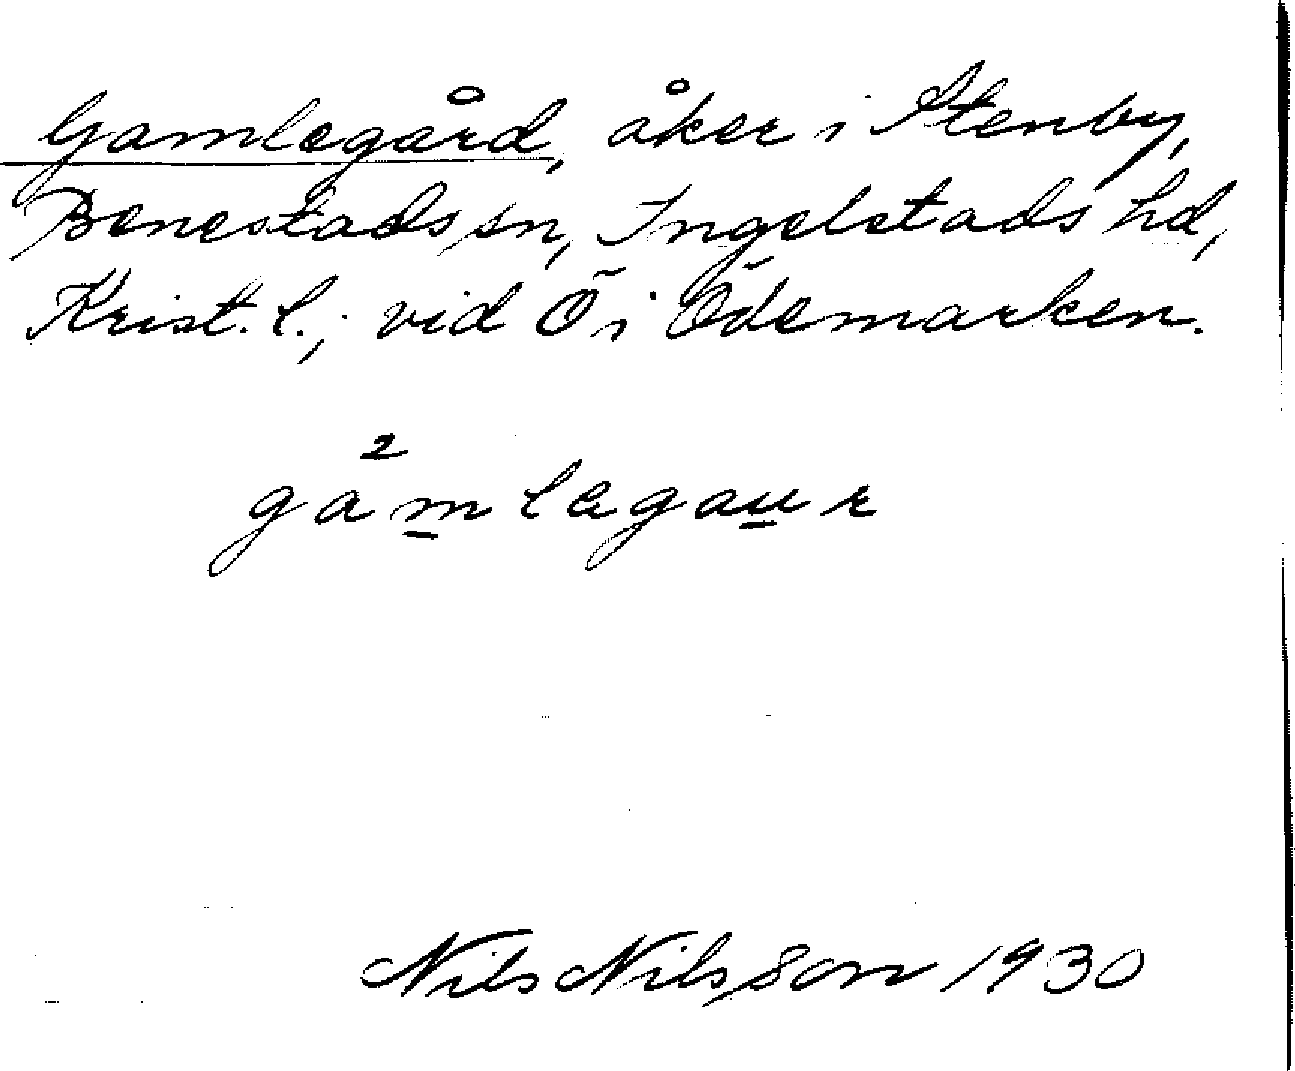 Gamlegård, åker i Stenby,
Benestads sn, Ingelstads hd,
Krist. l.; vid Ö i Ödemarken.
2
gamlegaur
Nils Nilsson 1930